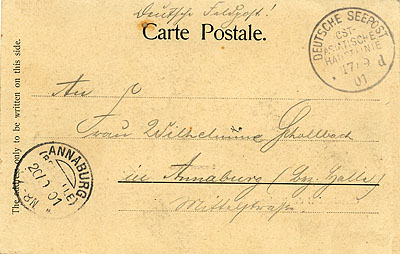 Deutsche Feldpost!
Carte Postale.
The address only to be written on this side.
DEUTSCHE SEEPOST
OST-
ASIATISCHE
HAUPTLINIE
17/9 d
01
An
Frau Wilhelmine
in Annaburg (Bz. Halle)
Mittelstraße.
ANNABURG
01